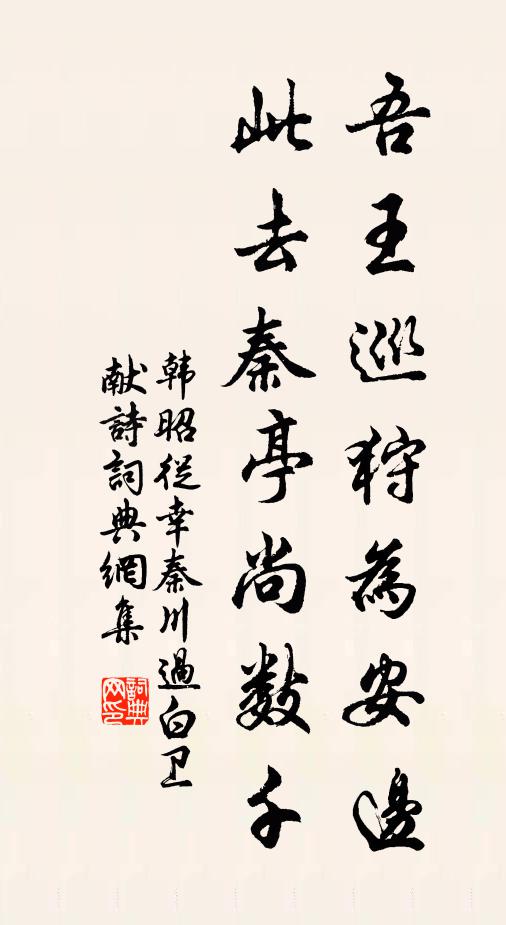 吾王巡狩為安邊
此去秦亭尚數千
韩昭從幸秦川過白卫
献詩詞典網集
詞典
网印